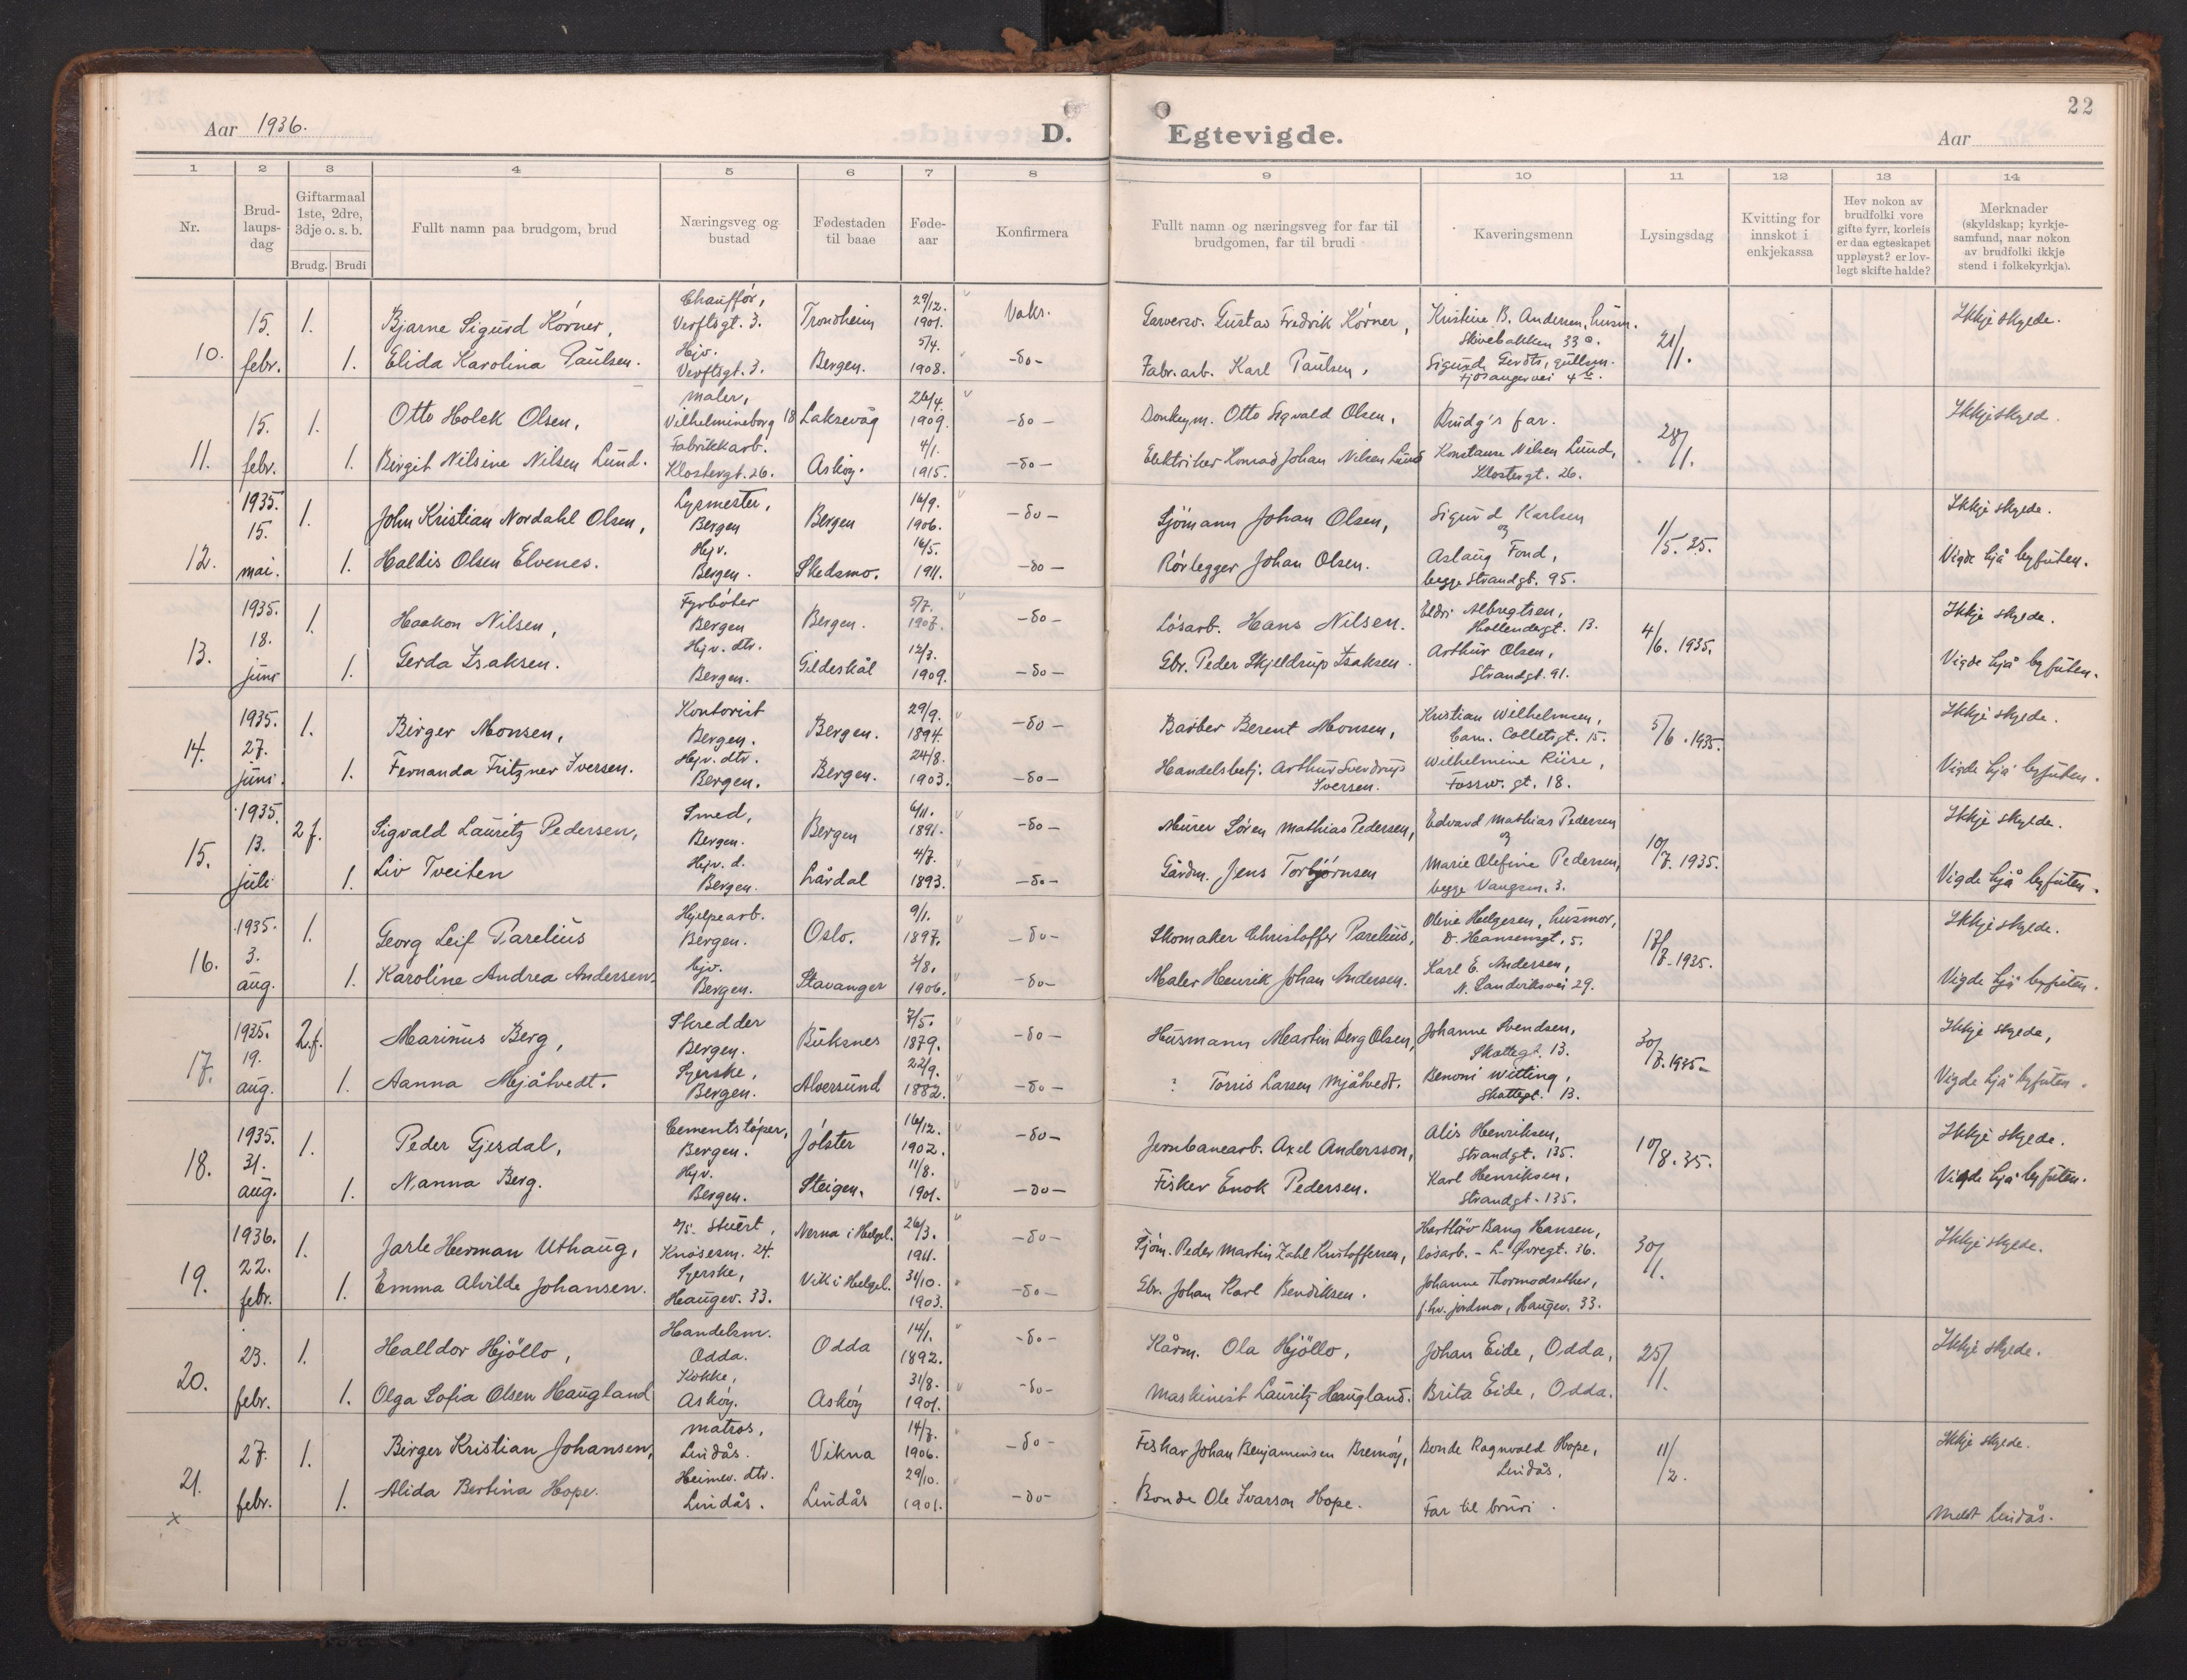 Aar 1936. D. Egtevigde. Aar 22
1 2 3 4 5 6 7 8 9 10 11 12 13 14
Nr.
Brud-
laups-
dag
Giftarmaal
1ste, 2dre,
3dje o. s. b.
Brudg. Brudi
Fullt namn paa brudgom, brud
Næringsveg og
bustad
Fødestaden
til baae
Føde-
aar
Konfirmera
Fullt namn og næringsveg for far til
brudgomen, far til brudi
Kaveringsmenn
Lysingsdag
Kvitting for
innskot i
enkjekassa
Hev nokon av
brudfolki vore
gifte fyrr, korleis
er daa egteskapet
uppløyst? er lov-
legt skifte halde?
Merknader
(skyldskap; kyrkje-
samfund, naar nokon
av brudfolki ikkje
stend i folkekyrkja).
10. 15. febr.
1. Bjarne Sigurd Körner, Chaufför, Verftsgt. 3. Trondheim 29/12. 1901. Vaks. Garversv. Gustav Fredrik Körner, Kristine B. Andersen, husm. Skivebakken 33 a. 21/1. Ikkje skylde.
1. Elida Karolina Paulsen. Hjv. Verftsgt. 3. Bergen. 5/4. 1908. -do- Fabr. arb. Karl Paulsen, Sigurd Gerdts, gullsm. Fjösangervei 4 b.
11. 15. febr.
1. Otto Holck Olsen, maler, Vilhelmineborg 18 Laksevåg 26/4. 1909. -do- Donkeym. Otto Sigvald Olsen, Brudg's far. 28/1. Ikkje skyld.
1. Birgit Nilsine Nilsen Lund. Fabrikkarb. Klostergt. 26. Asköy. 4/1. 1915. -do- Elektriker Konrad Johan Nilsen Lund Konstanse Nilsen Lund, Klostergt. 26.
12. 1935. 15. mai.
1. John Kristian Nordahl Olsen, Lyrmester, Bergen Bergen 16/9. 1906. -do- Sjömann Johan Olsen, Sigurd Karlsen og 1/5. 35. Ikkje skylde.
1. Haldis Olsen Elvenes. Hjv. Bergen. Skedsmo. 16/5. 1911. -do- Rörlegger Johan Olsen. Aslaug Fond, begge Strandgt. 95. Vigde hjå byfuten.
13. 1935. 18. juni
1. Haakon Nilsen, Fyrböter Bergen Bergen. 5/7. 1907. -do- Lösarb. Hans Nilsen. Eldri Albregtsen, Hollendergt. 13. 4/6. 1935. Ikkje skylde.
1. Gerda Isaksen. Hjv. dtr. Bergen. Gildeskål 12/3. 1909. -do- Gbr. Peder Skjeldrup Isaksen. Arthur Olsen, Strandgt. 91. Vigde hjå byfuten.
14. 1935. 27. juni.
1. Birger Monsen, Kontorist Bergen. Bergen. 29/9. 1894 -do- Barber Berent Monsen, Kristian Wilhelmsen, Cam. Colletsgt. 15. 5/6. 1935. Ikkje skylde.
1. Fernanda Fritzner Iversen. Hjv. dtr. Bergen. Bergen. 24/8. 1903. -do- Handelsbetj. Arthur Sverdrup Iversen. Wilhelmine Riise, Fossw. gt. 18. Vigde hjå byfuten.
15. 1935. 13. juli
2 f. Sigvald Lauritz Pedersen, Smed, Bergen. Bergen 6/11. 1891. -do- Murer Sören Mathias Pedersen, Edvard Mathias Pedersen og 10/7. 1935. Ikkje skylde.
1. Liv Tveiten Hjv. d. Bergen. Lårdal 4/7. 1893. -do- Gårdm. Jens Torbjörnsen Marie Olefine Pedersen, begge Vangsm. 3. Vigde hjå byfuten.
16. 1935. 3. aug.
1. Georg Leif Parelius Hjelpearb. Bergen. Oslo. 9/1. 1897. -do- Skomaker Christoffer Parelius, Oline Helgesen, husmor, D. Hansensgt. 5. 17/7. 1935. Ikkje skylde.
1. Karoline Andrea Andersen. Hjv. Bergen. Stavanger 3/8. 1906. -do- Maler Henrik Johan Andersen. Karl E. Andersen, N. Sandviksvei 29. Vigde hjå byfuten.
17. 1935. 19. aug.
2. f. Marinus Berg, Skredder Bergen. Buksnes 7/5. 1879. -do- Husmann Martin Berg Olsen, Johanne Svendsen, Skottegt. 13. 30/7. 1935. Ikkje skylde,
1. Aanna Mjåtvedt. Syerske, Bergen. Alversund 22/9. 1882. -do- ? Torris Larsen Mjåtvedt. Benoni Witting, Skottegt. 13. Vigde hjå byfuten.
18. 1935. 31. aug.
1. Peder Gjesdal, Cementstöper, Bergen. Jölster 16/12. 1902. -do- Jernbanearb. Axel Andersson, Alis Henriksen, Strandgt. 135. 10/8. 35. Ikkje skylde.
1. Nanna Berg. Hjv. Bergen. Steigen. 11/8. 1901. -do- Fisker Enok Pedersen. Karl Henriksen, Strandgt. 135. Vigde hjå byfuten.
19. 1936. 22. febr.
1. Jarle Herman Uthaug, Stuert, Knösesm. 24. Nesna i Helgel. 26/3. 1911. -do- Sjöm. Peder Martin Zahl Kristoffersen, Hartlöv Bang Hansen, lösarb. - L. Øvregt. 36. 30/1. Ikkje skylde.
1. Emma Alvilde Johansen. Syerske, Haugev. 33. Vik i Helgel. 31/10. 1903. -do- Gbr. Johan Karl Bendiksen. Johanne Thormodsether, f.hv. jordmor, Haugev. 33.
20. 23. febr.
1. Halldor Hjöllo, Handelsm. Odda. Odda 14/1. 1892. -do- Kårm. Ola Hjöllo, Johan Eide, Odda, 25/1. Ikkje skylde.
1. Olga Sofia Olsen Haugland Kokke, Asköy. Asköy 31/8. 1901. -do- Maskinist Lauritz Haugland. Brita Eide, Odda.
21. x 27. febr.
1. Birger Kristian Johansen, matros, Lindås. Vikna 14/7. 1906. -do- Fiskar Johan Benjaminsen Bremöy, Bonde Ragnvald Hope, Lindås. 11/2. Ikkje skylde.
1. Alida Bertina Hope. Heimev. dtr. Lindås. Lindås 29/10. 1901. -do- Bonde Ole Ivarson Hope. Far til bruri. Meldt Lindås.